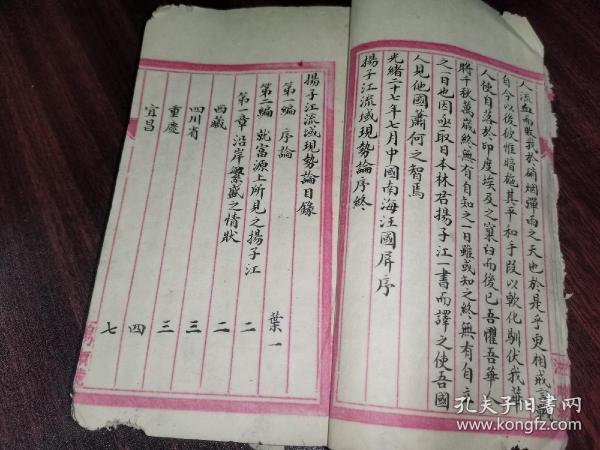 人流血而賺我於硝烟彈雨之天也於是乎更相戒言戰
自今以後彼惟暗施其平和手段以軟化馴伏我華
人使自落於印度埃及之窠臼而後已吾懼吾華人
將千秋萬歲終無有自知之一日雖或知之終無有自立
之一日也因亟取日本林君揚子江一書而譯之使吾國
人見他國蕭何之智焉
光緒二十七年七月中國南海汪國屏序
揚子江流域現勢論序終
揚子江流域現勢論目錄
第一編 序論 葉一
第二編 就富源上所見之揚子江
第一章沿岸繁盛之情狀 二
西藏 二
四川省 三
重慶 三
宜昌 四
七
孔夫子旧書网